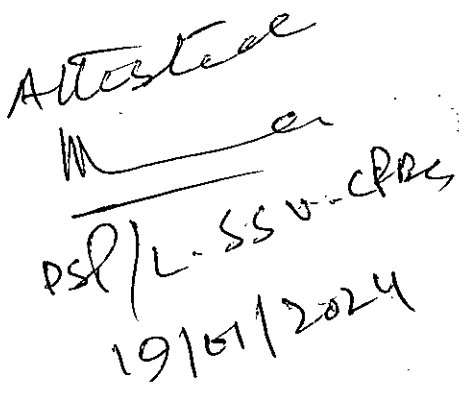 Attested
DSP/L. SSV. CPBG
19/01/2024